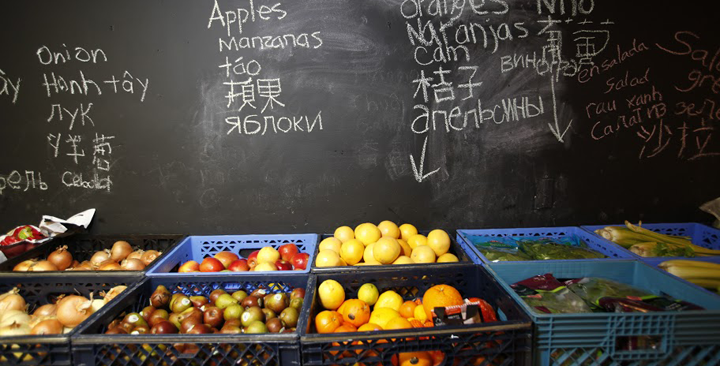 Onion
Hành tây
лук
Cebolla
Apples
Manzanas
táo
蘋果
яблоки
oranges
Naranjas
cam
桔子
апельсины
Nho
виноград
ensalada
salad
rau xanh
沙拉